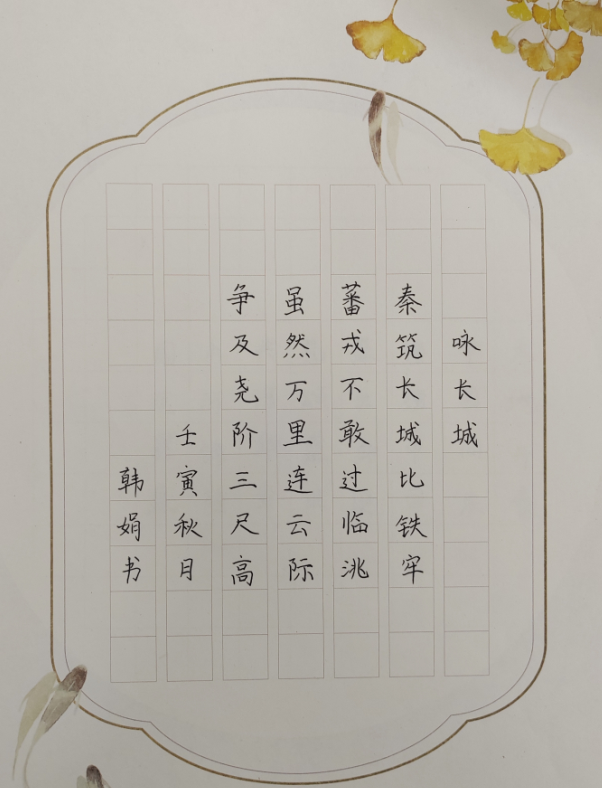 咏长城
秦筑长城比铁牢
蕃戎不敢过临洮
虽然万里连云际
争及尧阶三尺高
壬寅秋月
韩娟书